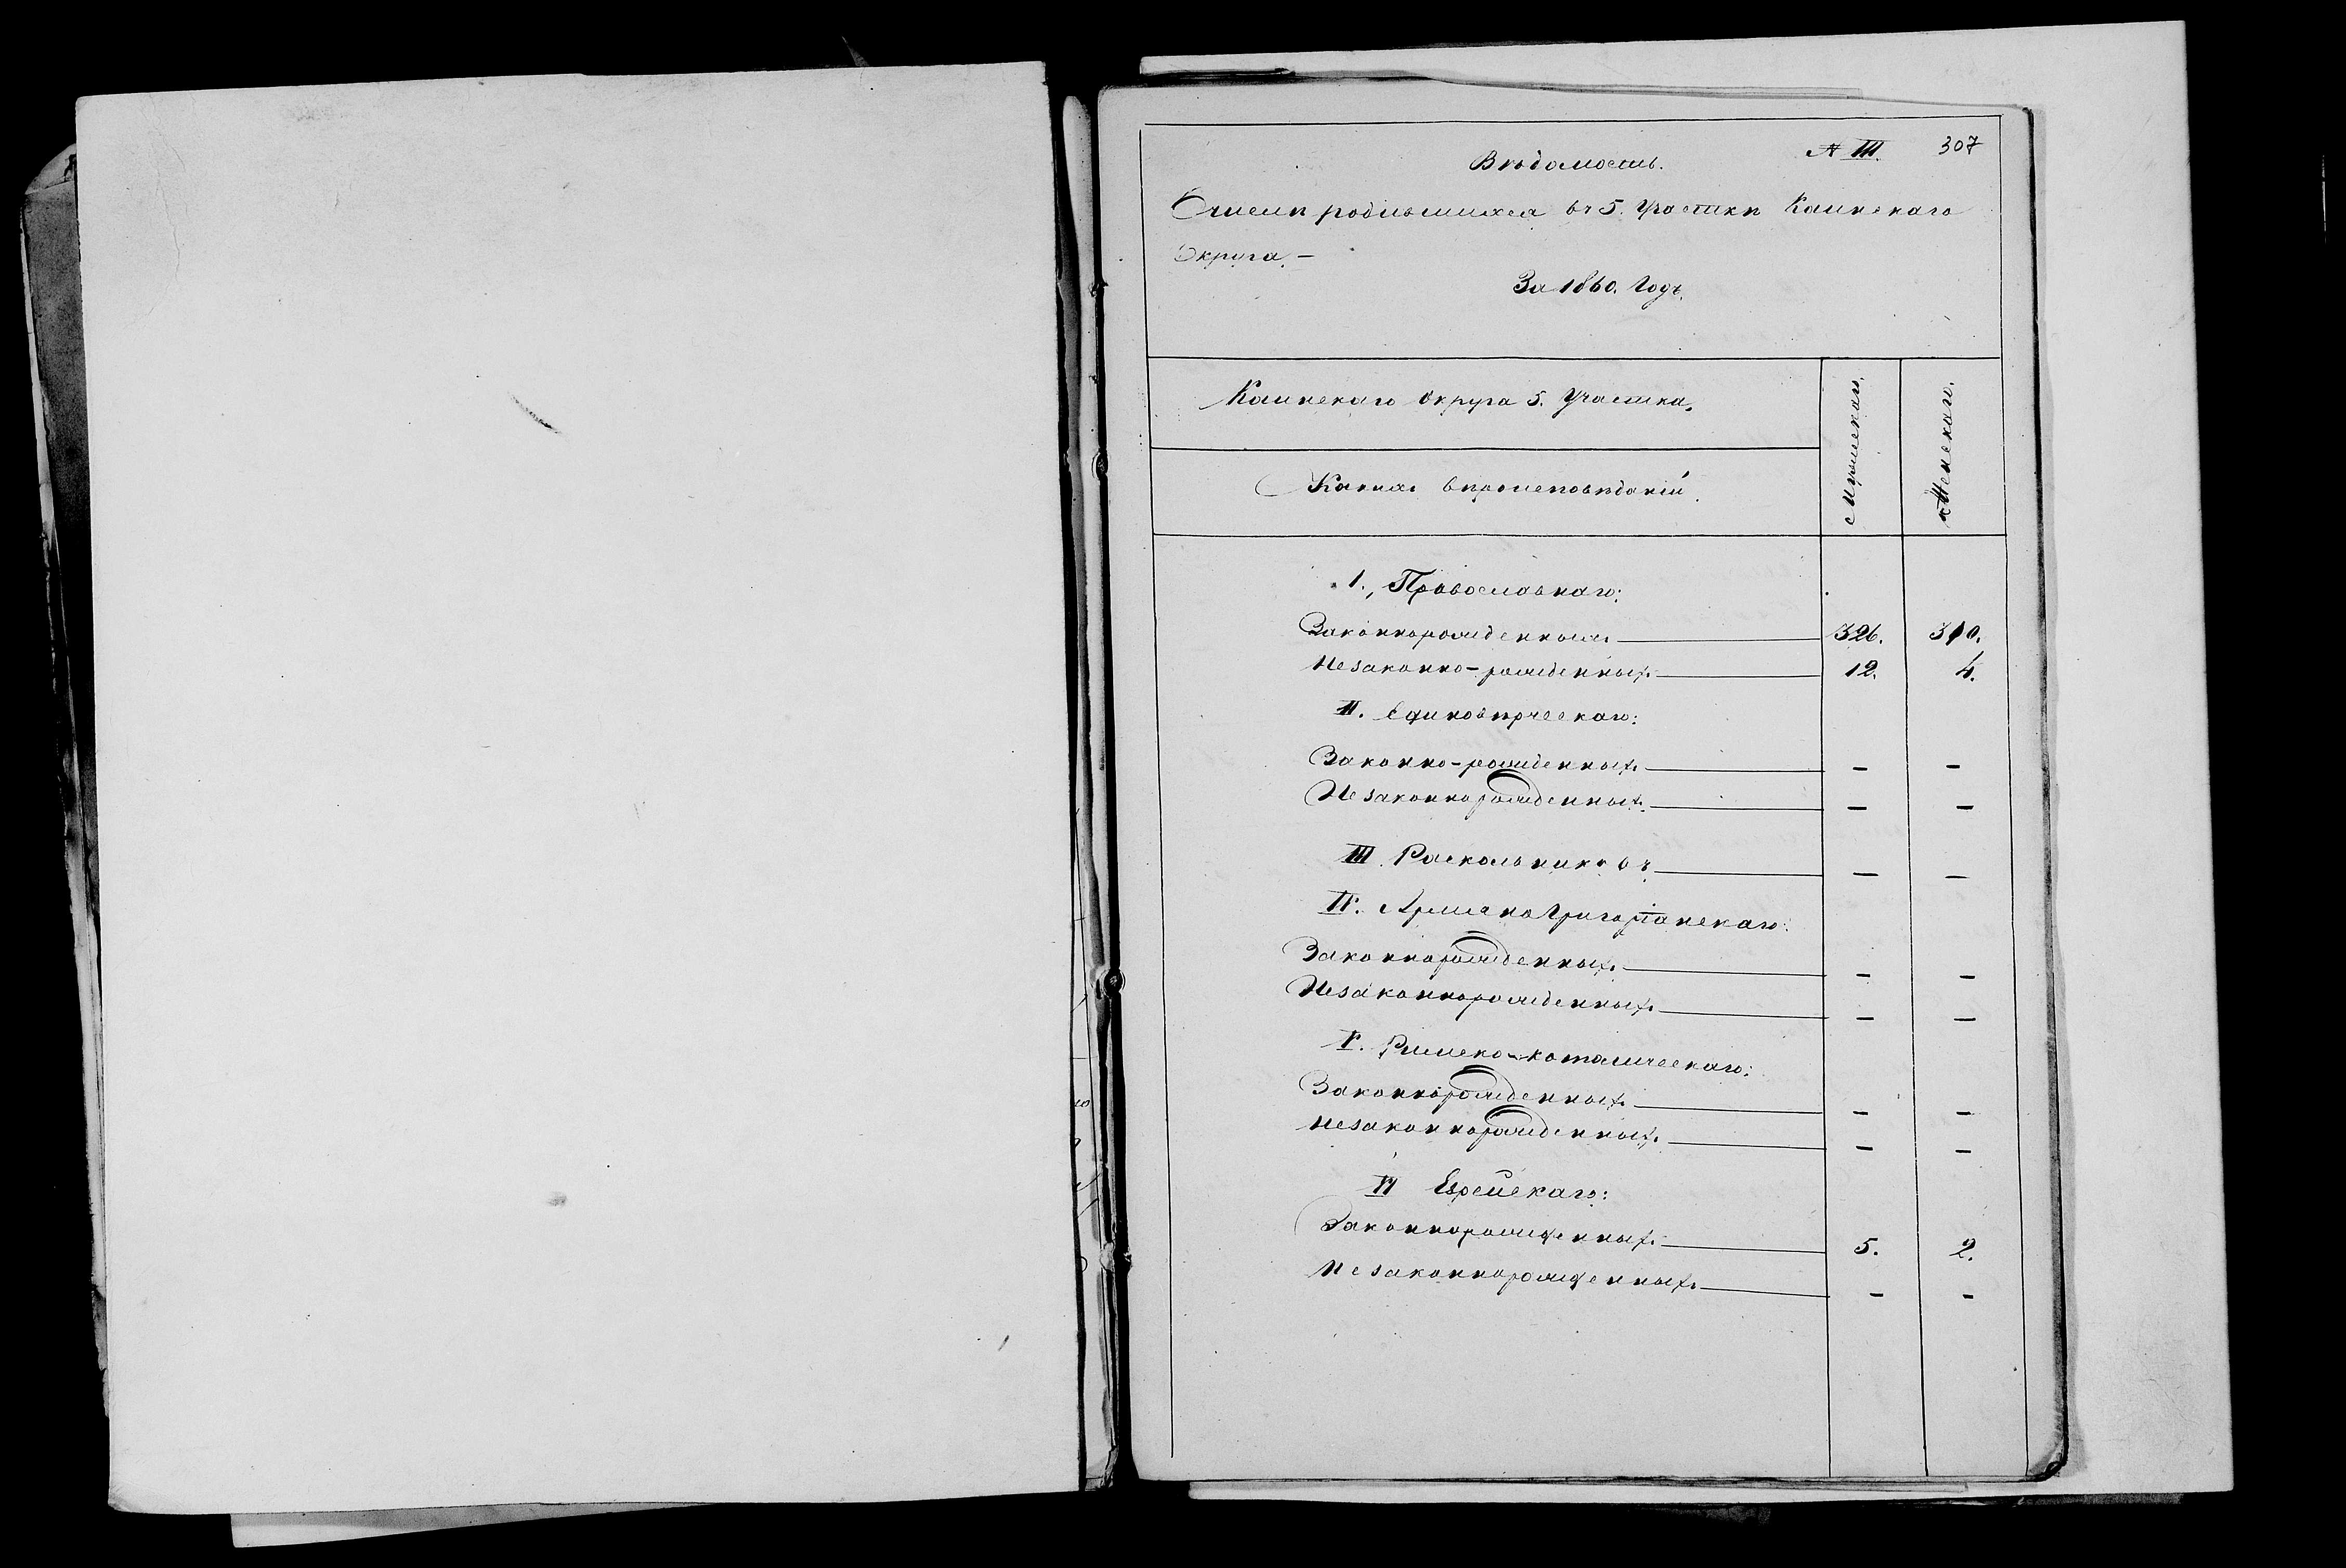 № III. 307
Вѣдомость.
О числѣ родившихся въ 5. Участкѣ Каинскаго
Округа. –
За 1860. Годъ.
Каинскаго Округа 5. Участка.
Мужескаго.
Женскаго.
Какихъ вѣроисповѣданій.
1., Православнаго:
Законнорожденныхъ 326. 310.
Незаконно-рожденныхъ 12. 4.
II. Единовѣрческаго:
Законно-рожденныхъ – –
Незаконнорожденныхъ – –
III. Раскольниковъ – –
IV. Армяно Григоріанскаго:
Законнорожденныхъ – –
Незаконнорожденныхъ – –
V. Римско-католическаго:
Законнорожденныхъ – –
Незаконнорожденныхъ – –
VI Еврейскаго:
Законнорожденныхъ 5. 2.
Незаконнорожденныхъ – –